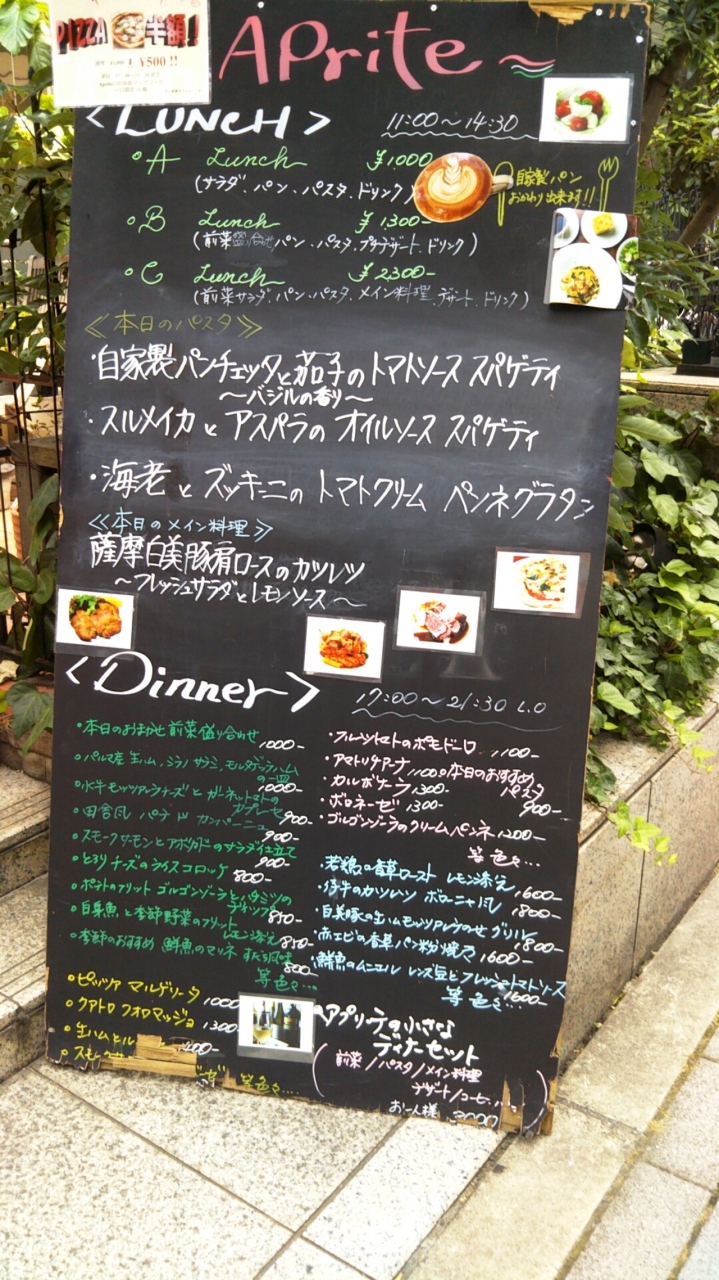 PIZZA 半額!
¥500!!
APrite
<LUNCH>
11:00〜14:30
・A Lunch ¥1000
(サラダ、パン、パスタ、ドリンク)
自家製パン
おかわり出来ます!!
・B Lunch ¥1300-
(前菜盛り合せ パン、パスタ、プチデザート、ドリンク)
・C Lunch ¥2300-
(前菜サラダ、パン、パスタ、メイン料理、デザート、ドリンク)
≪本日のパスタ≫
・自家製パンチェッタと茄子のトマトソース スパゲティ
〜バジルの香り〜
・スルメイカとアスパラのオイルソース スパゲティ
・海老とズッキーニのトマトクリーム ペンネグラタン
≪本日のメイン料理≫
薩摩白美豚肩ロースのカツレツ
〜フレッシュサラダとレモンソース〜
<Dinner>
17:00〜21:30 L.O
・本日のおまかせ前菜盛り合わせ
1000-
・パルマ産生ハム、ミラノサラミ、モルタデッラハム
の一皿
1000-
・水牛モッツァレラチーズとガーネットトマトの
カプレーゼ
900-
・田舎風 パテ ド カンパーニュ
900-
・スモークサーモンとアボカドのサラダ仕立て
900-
・とろりチーズのライスコロッケ
800-
・ポテトのフリット ゴルゴンゾーラとハチミツの
850-
・白身魚と季節野菜のフリット
レモン添え 850-
・季節のおすすめ 鮮魚のマリネ すだち風味
800-
等色々…
・ピッツァ マルゲリータ
1000
・クアトロ フォルマッジョ
1300
・生ハムとル
・スモーク
等色々…
・フルーツトマトのポモドーロ 1100-
・アマトリチアーナ 1100
・本日のおすすめ
パスタ
900-
・カルボナーラ 1300-
・ボロネーゼ 1300-
・ゴルゴンゾーラのクリームペンネ 1200-
等色々…
・若鶏の香草ロースト レモン添え
1600-
・仔牛のカツレツ ボローニャ風
1800-
・白美豚の生ハムモッツァレラのせ グリル
1800-
・赤エビの香草パン粉焼き 1600-
・鮮魚のムニエル レンズ豆とフレッシュトマトソース
1600-
等色々…
アプリーテの小さな
ディナーセット
(前菜/パスタ/メイン料理
デザート/コーヒー…)
お一人様 3000